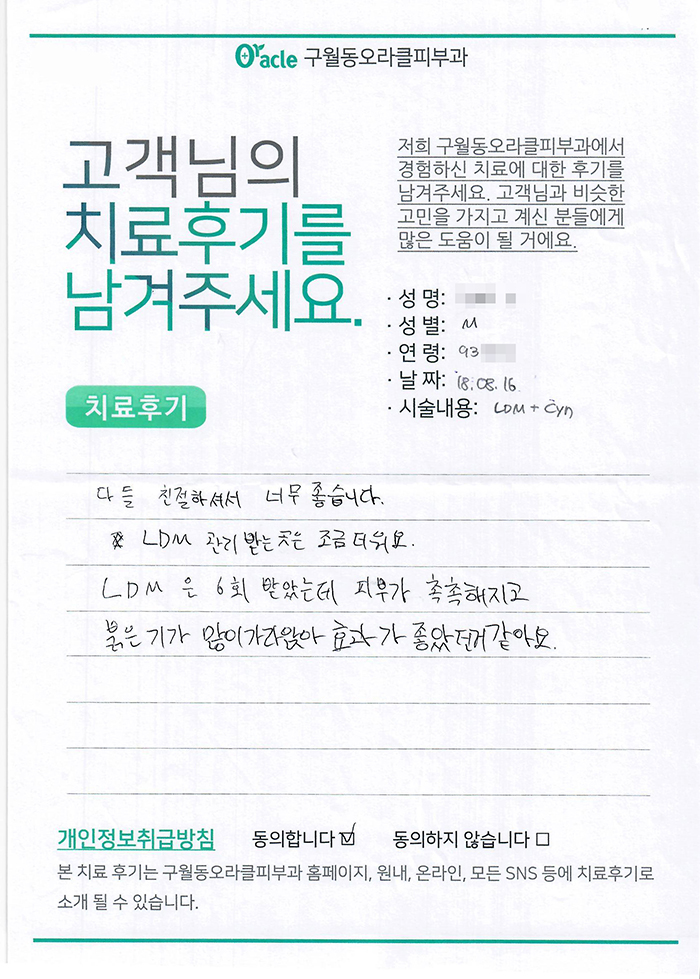 Oracle 구월동오라클피부과
고객님의
치료후기를
남겨주세요.
저희 구월동오라클피부과에서
경험하신 치료에 대한 후기를
남겨주세요. 고객님과 비슷한
고민을 가지고 계신 분들에게
많은 도움이 될 거에요.
· 성 명:
· 성 별: M
· 연 령: 93
· 날 짜: '18.08.16.
· 시술내용: LDM + Cyn
치료후기
다들 친절하셔서 너무 좋습니다.
LDM 관리 받는 곳은 조금 더워요.
LDM 은 6회 받았는데 피부가 촉촉해지고
붉은기가 많이가라앉아 효과가 좋았던거같아요.
개인정보취급방침 동의합니다 ☑ 동의하지 않습니다 □
본 치료 후기는 구월동오라클피부과 홈페이지, 원내, 온라인, 모든 SNS 등에 치료후기로
소개 될 수 있습니다.